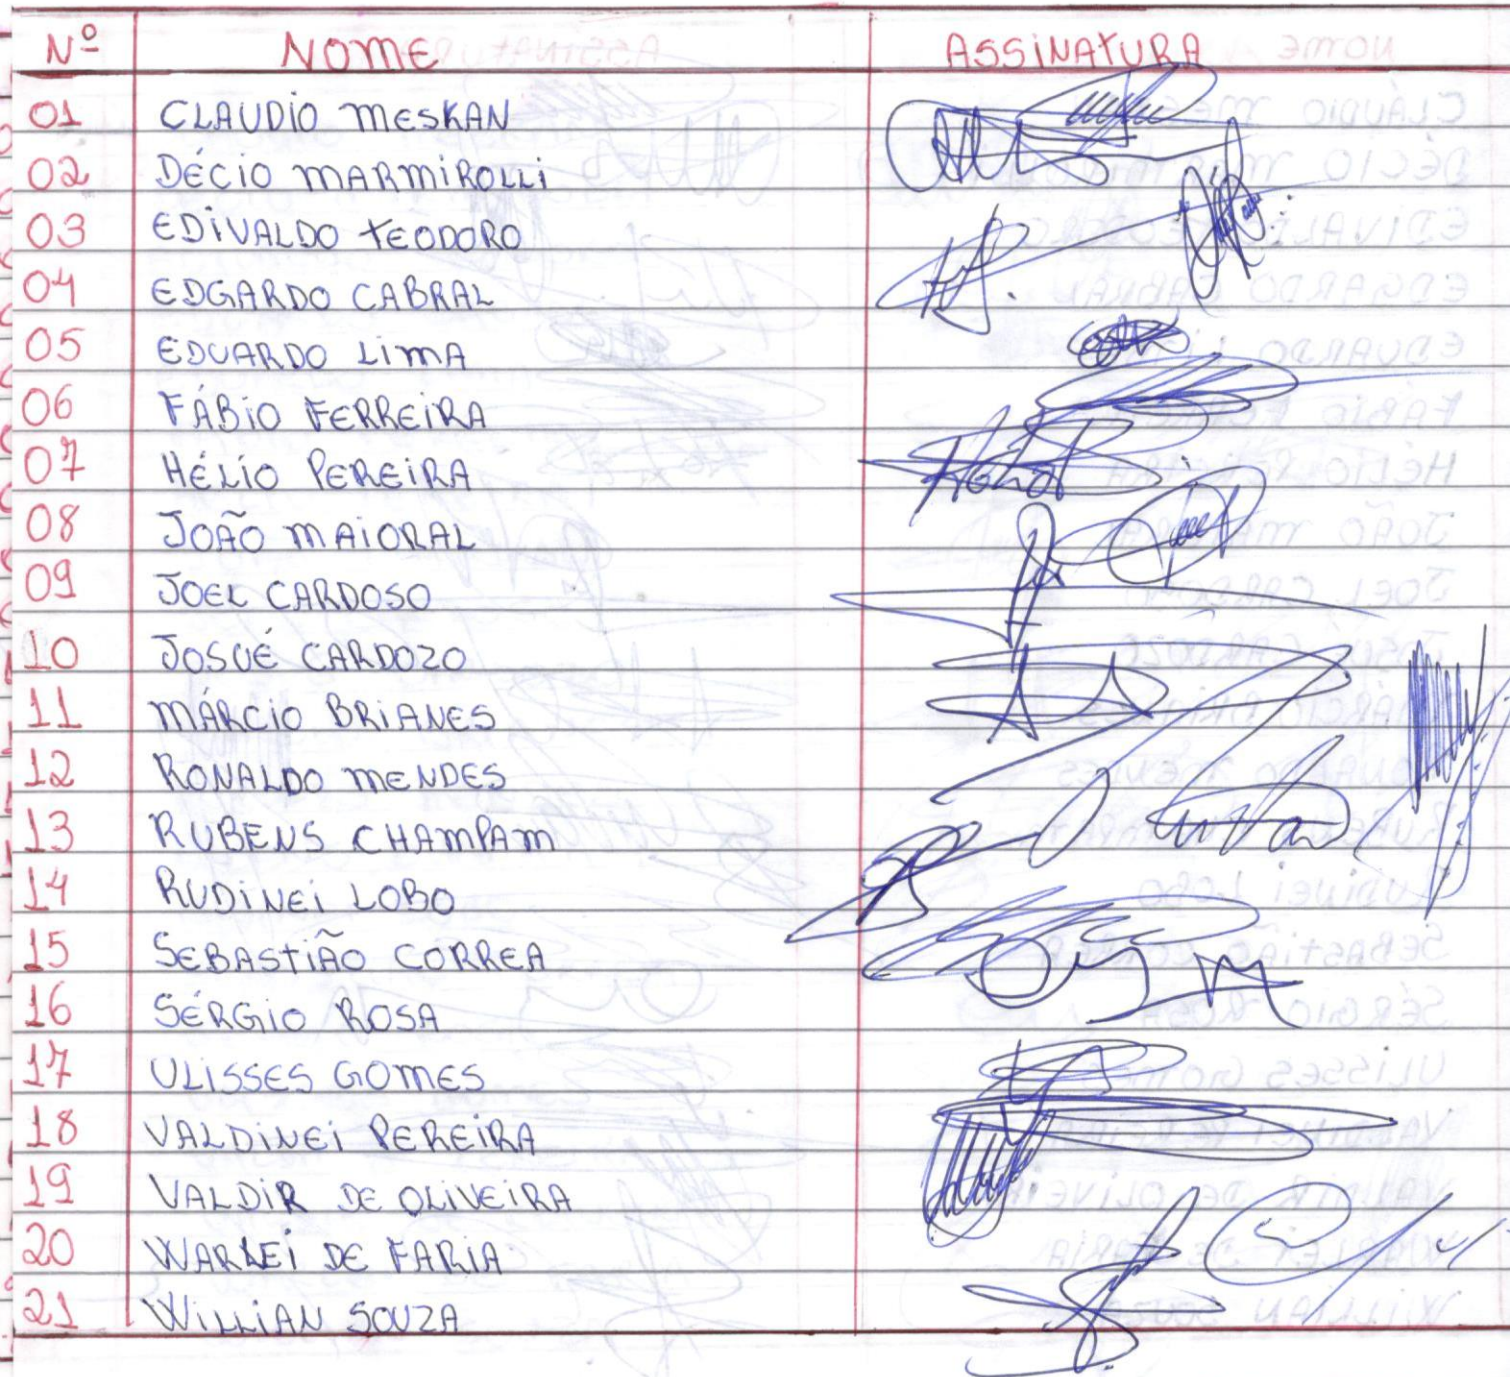 Nº NOME ASSINATURA
01 CLAUDIO MESKAN
02 DÉCIO MARMIROLLI
03 EDIVALDO TEODORO
04 EDGARDO CABRAL
05 EDUARDO LIMA
06 FÁBIO FERREIRA
07 HÉLIO PEREIRA
08 JOÃO MAIORAL
09 JOEL CARDOSO
10 JOSUÉ CARDOZO
11 MÁRCIO BRIANES
12 RONALDO MENDES
13 RUBENS CHAMPAM
14 RUDINEI LOBO
15 SEBASTIÃO CORREA
16 SÉRGIO ROSA
17 ULISSES GOMES
18 VALDINEI PEREIRA
19 VALDIR DE OLIVEIRA
20 WARLEI DE FARIA
21 WILLIAN SOUZA